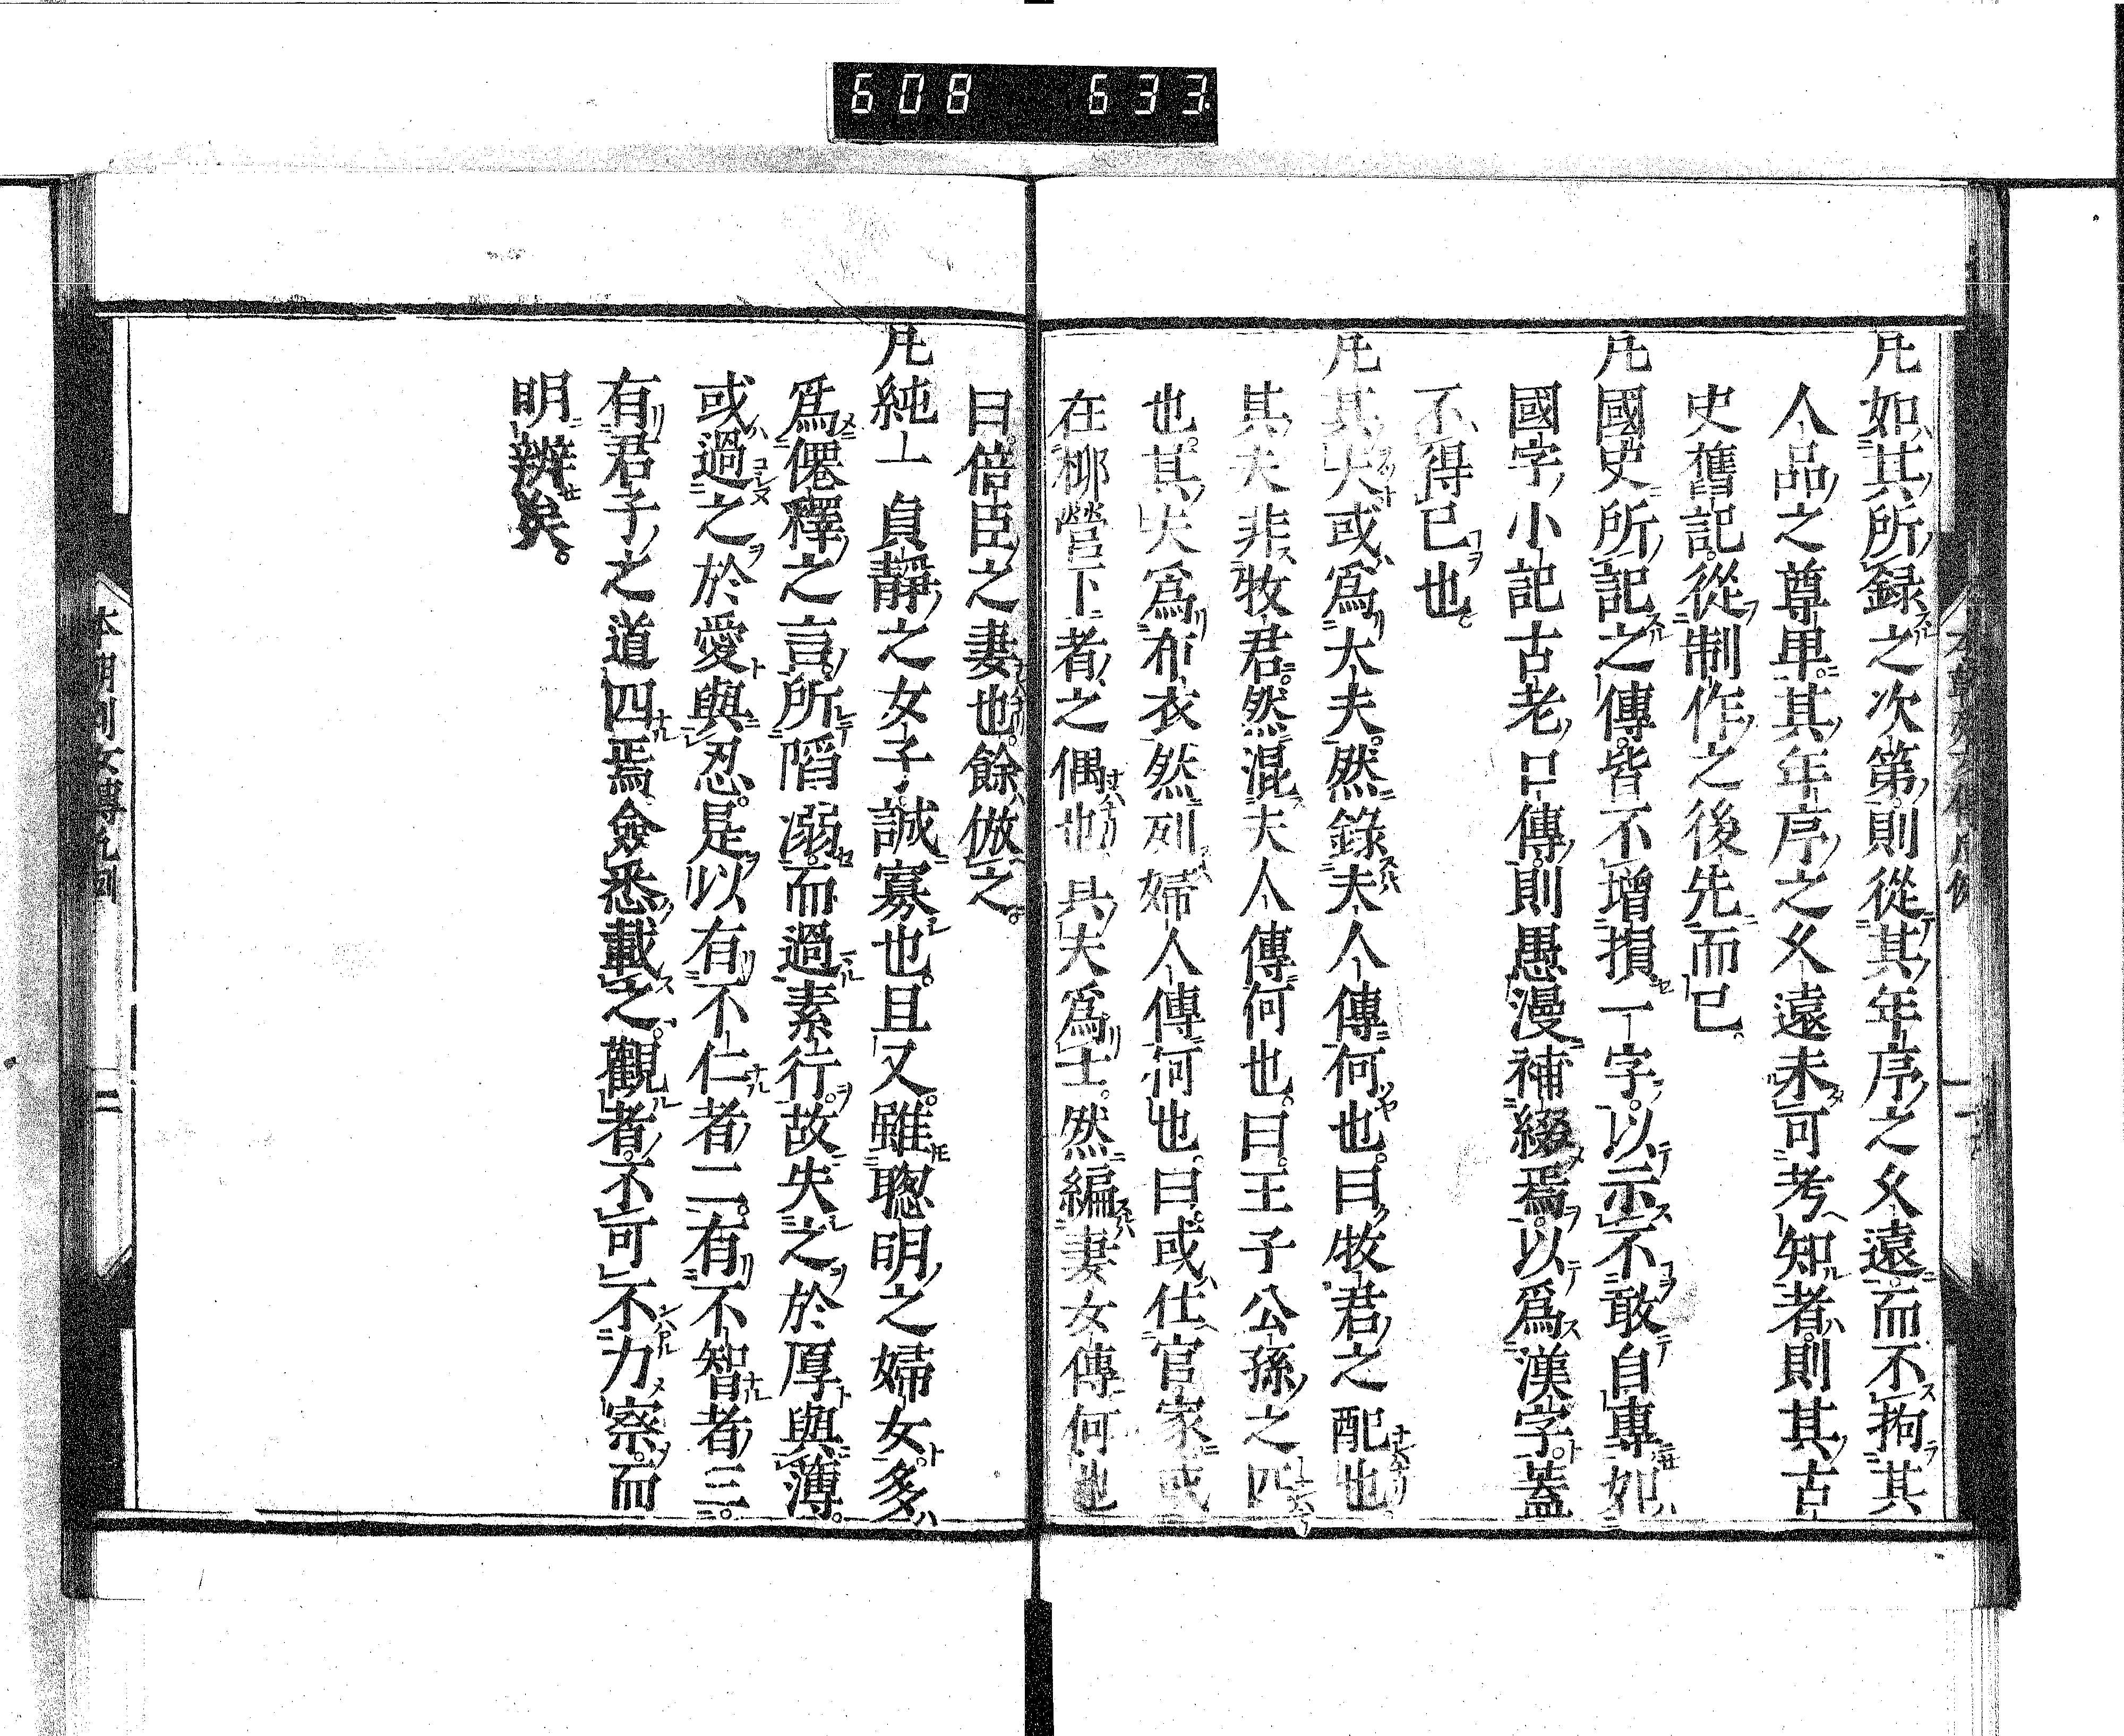 608 633
凡如其所録之次第則從其年序之乆遠而不拘其
人品之尊卑其年序之乆遠未可考知者則其古
史舊記從制作之後先而已
凡國史所記之傳皆不增損一字以示不敢自專如
國字小記古老口傳則愚漫補綴焉以爲漢字蓋
不得已也
凡其夫或爲大夫然錄夫人傳何也曰牧君之配也
其夫非牧君然混夫人傳何也曰王子公孫之匹
也其夫爲布衣然列婦人傳何也曰或仕官家或
在柳營下者之偶也其夫爲士然編妻女傳何也
曰倍臣之妻也餘倣之
凡純一貞靜之女子誠寡也且又雖聰明之婦女多
爲僊釋之言所陷溺而過素行故失之於厚與薄
或過之於愛與忍是以有不仁者二有不智者三
有君子之道四焉僉悉載之觀者不可不力察而
明辨矣
本朝列女傳凡例 二